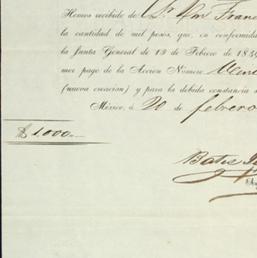 Hemos recibido de Sr. Don Fran
la cantidad de mil pesos, que, en conformida
la Junta General de 13 de Febrero de 185
mer pago de la Acción Número
(nueva creación) y para la debida constancia
México, á 20 de febrero
$ 1.000.
Bates